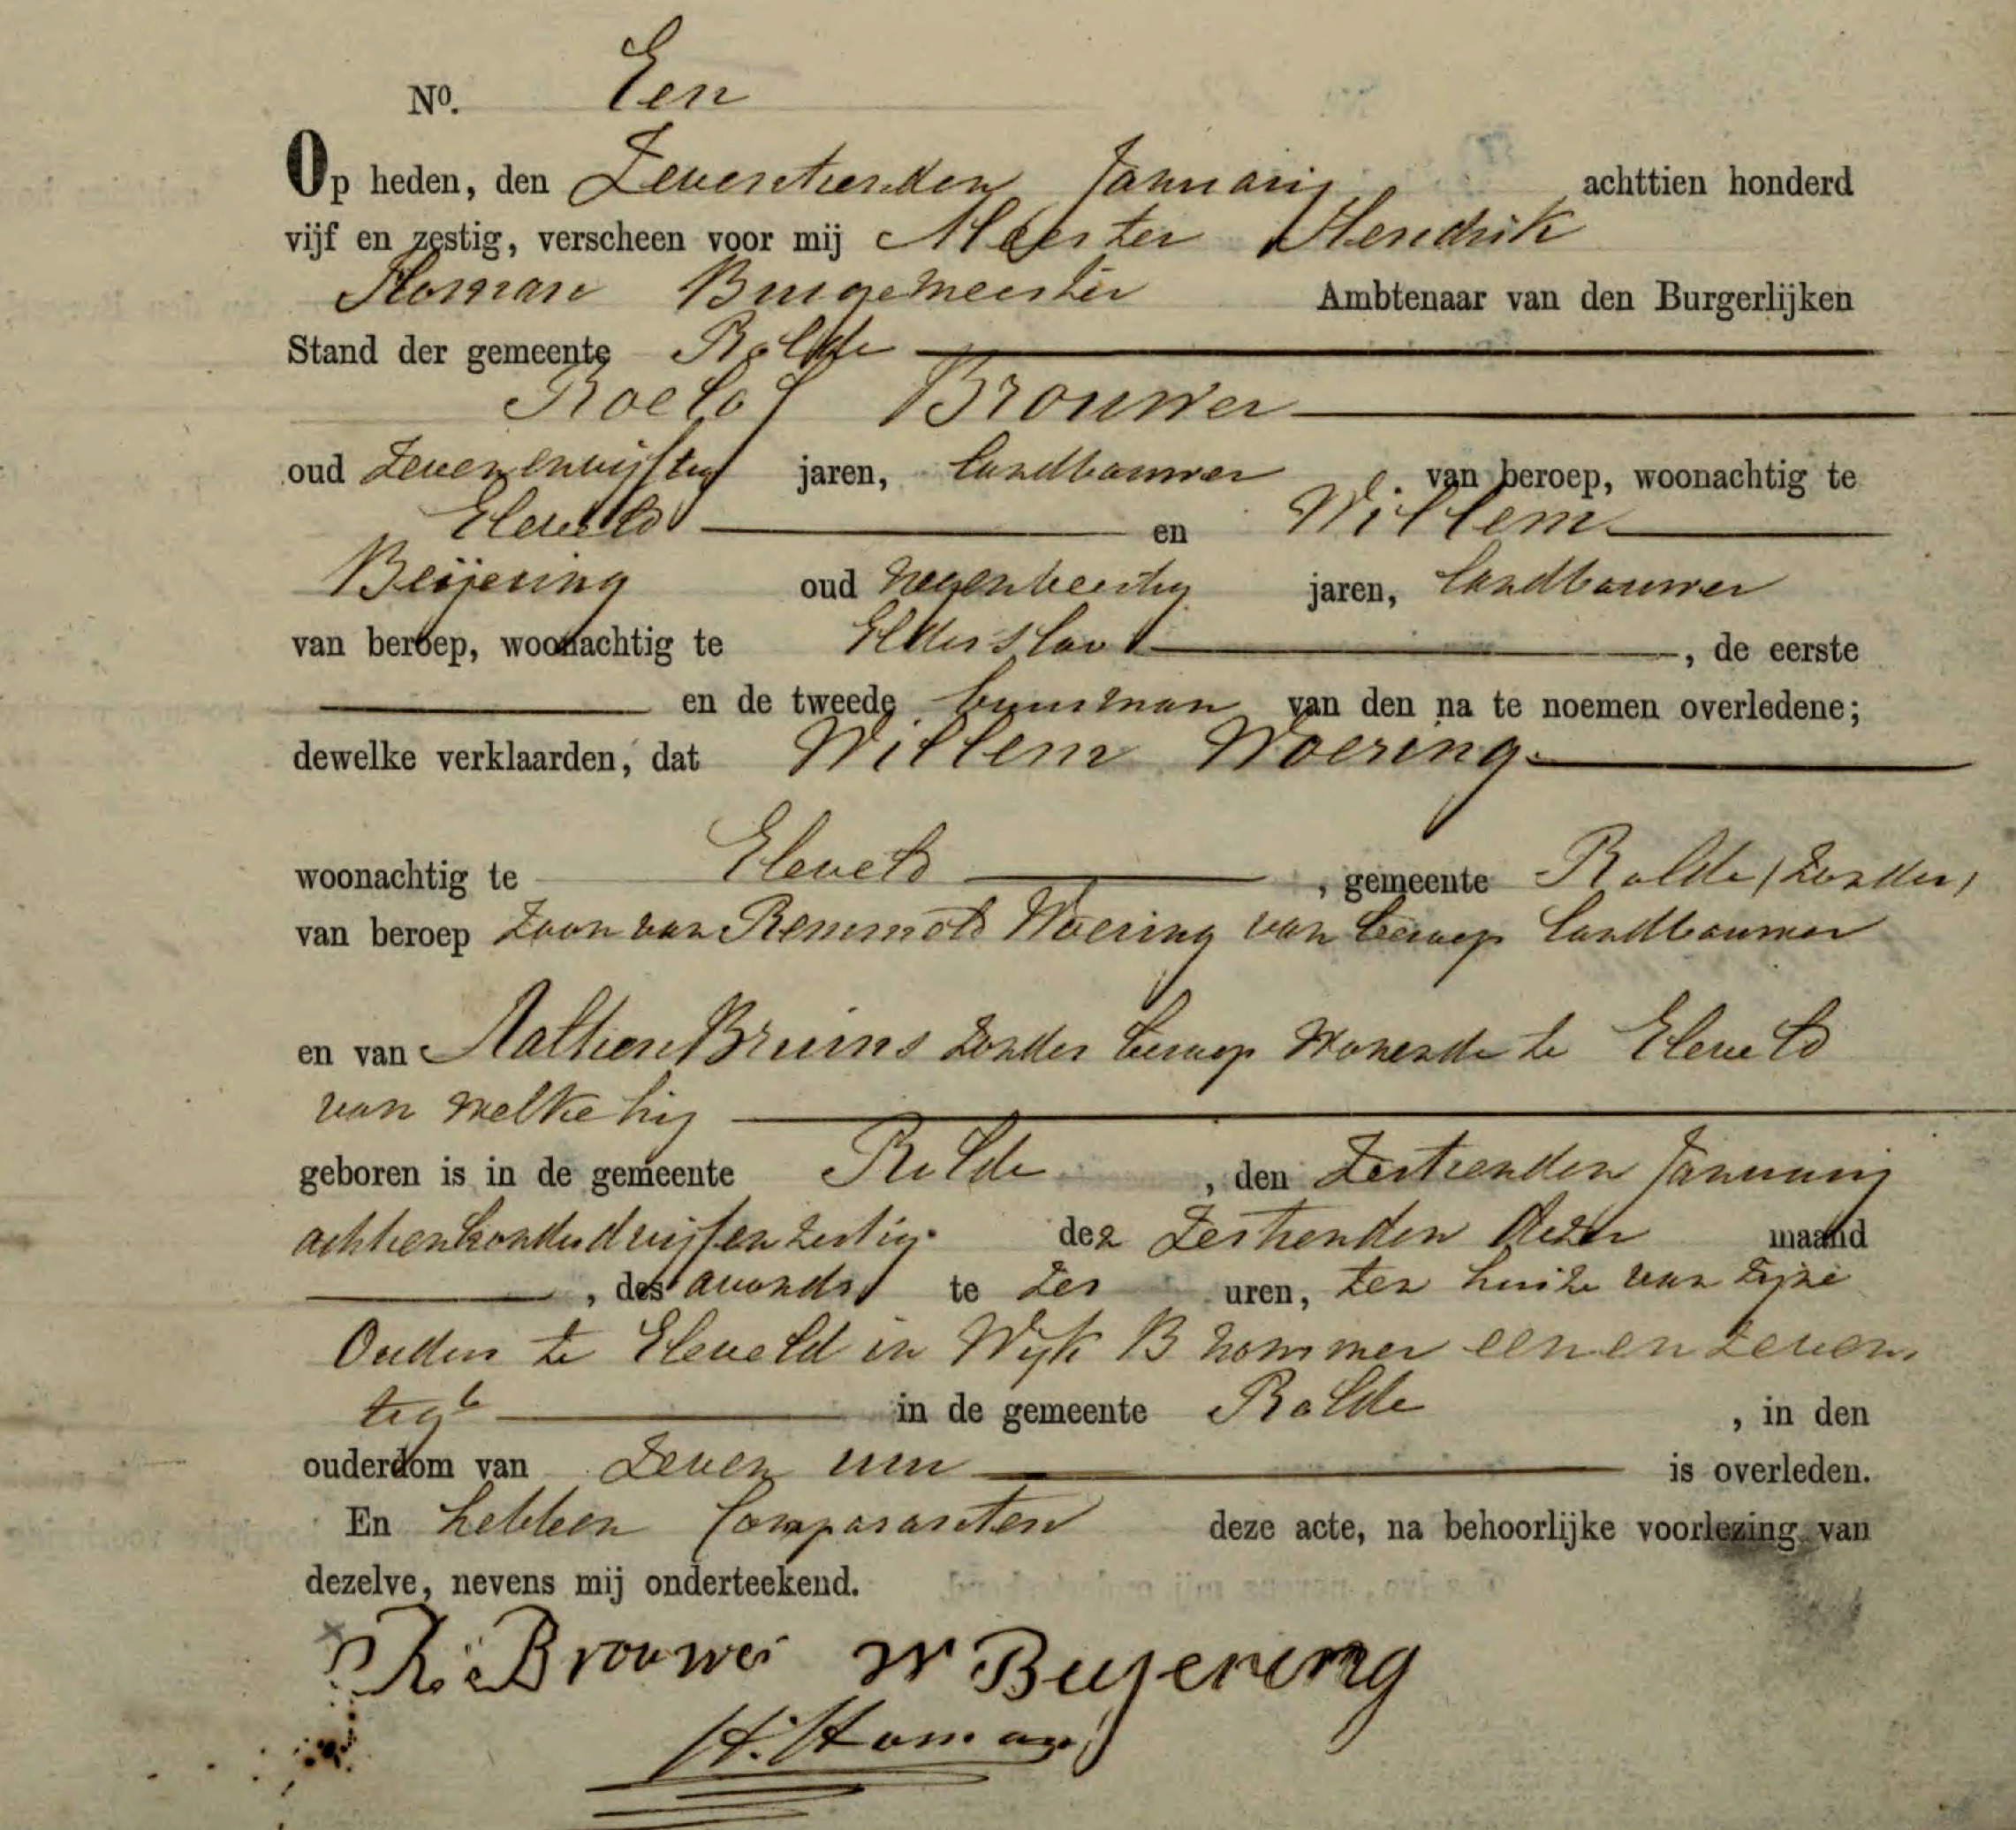 No. Een
Op heden, den Zeventienden Januarij achttien honderd
vijf en zestig, verscheen voor mij Meester Hendrik
Homan Burgemeester Ambtenaar van den Burgerlijken
Stand der gemeente Rolde
Roelof Brouwer
oud zevenenvijftig jaren, landbouwer van beroep, woonachtig te
Eleveld en Willem
Beijering oud negenveertig jaren, landbouwer
van beroep, woonachtig te Elderslo, de eerste
en de tweede buurman van den na te noemen overledene;
dewelke verklaarden, dat Willem Woering
woonachtig te Eleveld, gemeente Rolde, zonder
van beroep zoon van Remmelt Woering van beroep landbouwer
en van Aaltien Bruins zonder beroep wonende te Eleveld
van welke hij
geboren is in de gemeente Rolde, den zestienden Januarij
achttienhonderdvijfenzestig den zestienden dezer maand
, des avonds te zes uren, ten huize van zijne
Ouders te Eleveld in Wijk B nommer eenenzeven
tig in de gemeente Rolde, in den
ouderdom van zeven uren is overleden.
En hebben Comparanten deze acte, na behoorlijke voorlezing van
dezelve, nevens mij onderteekend.
R: Brouwer W Beijering
H. Homan